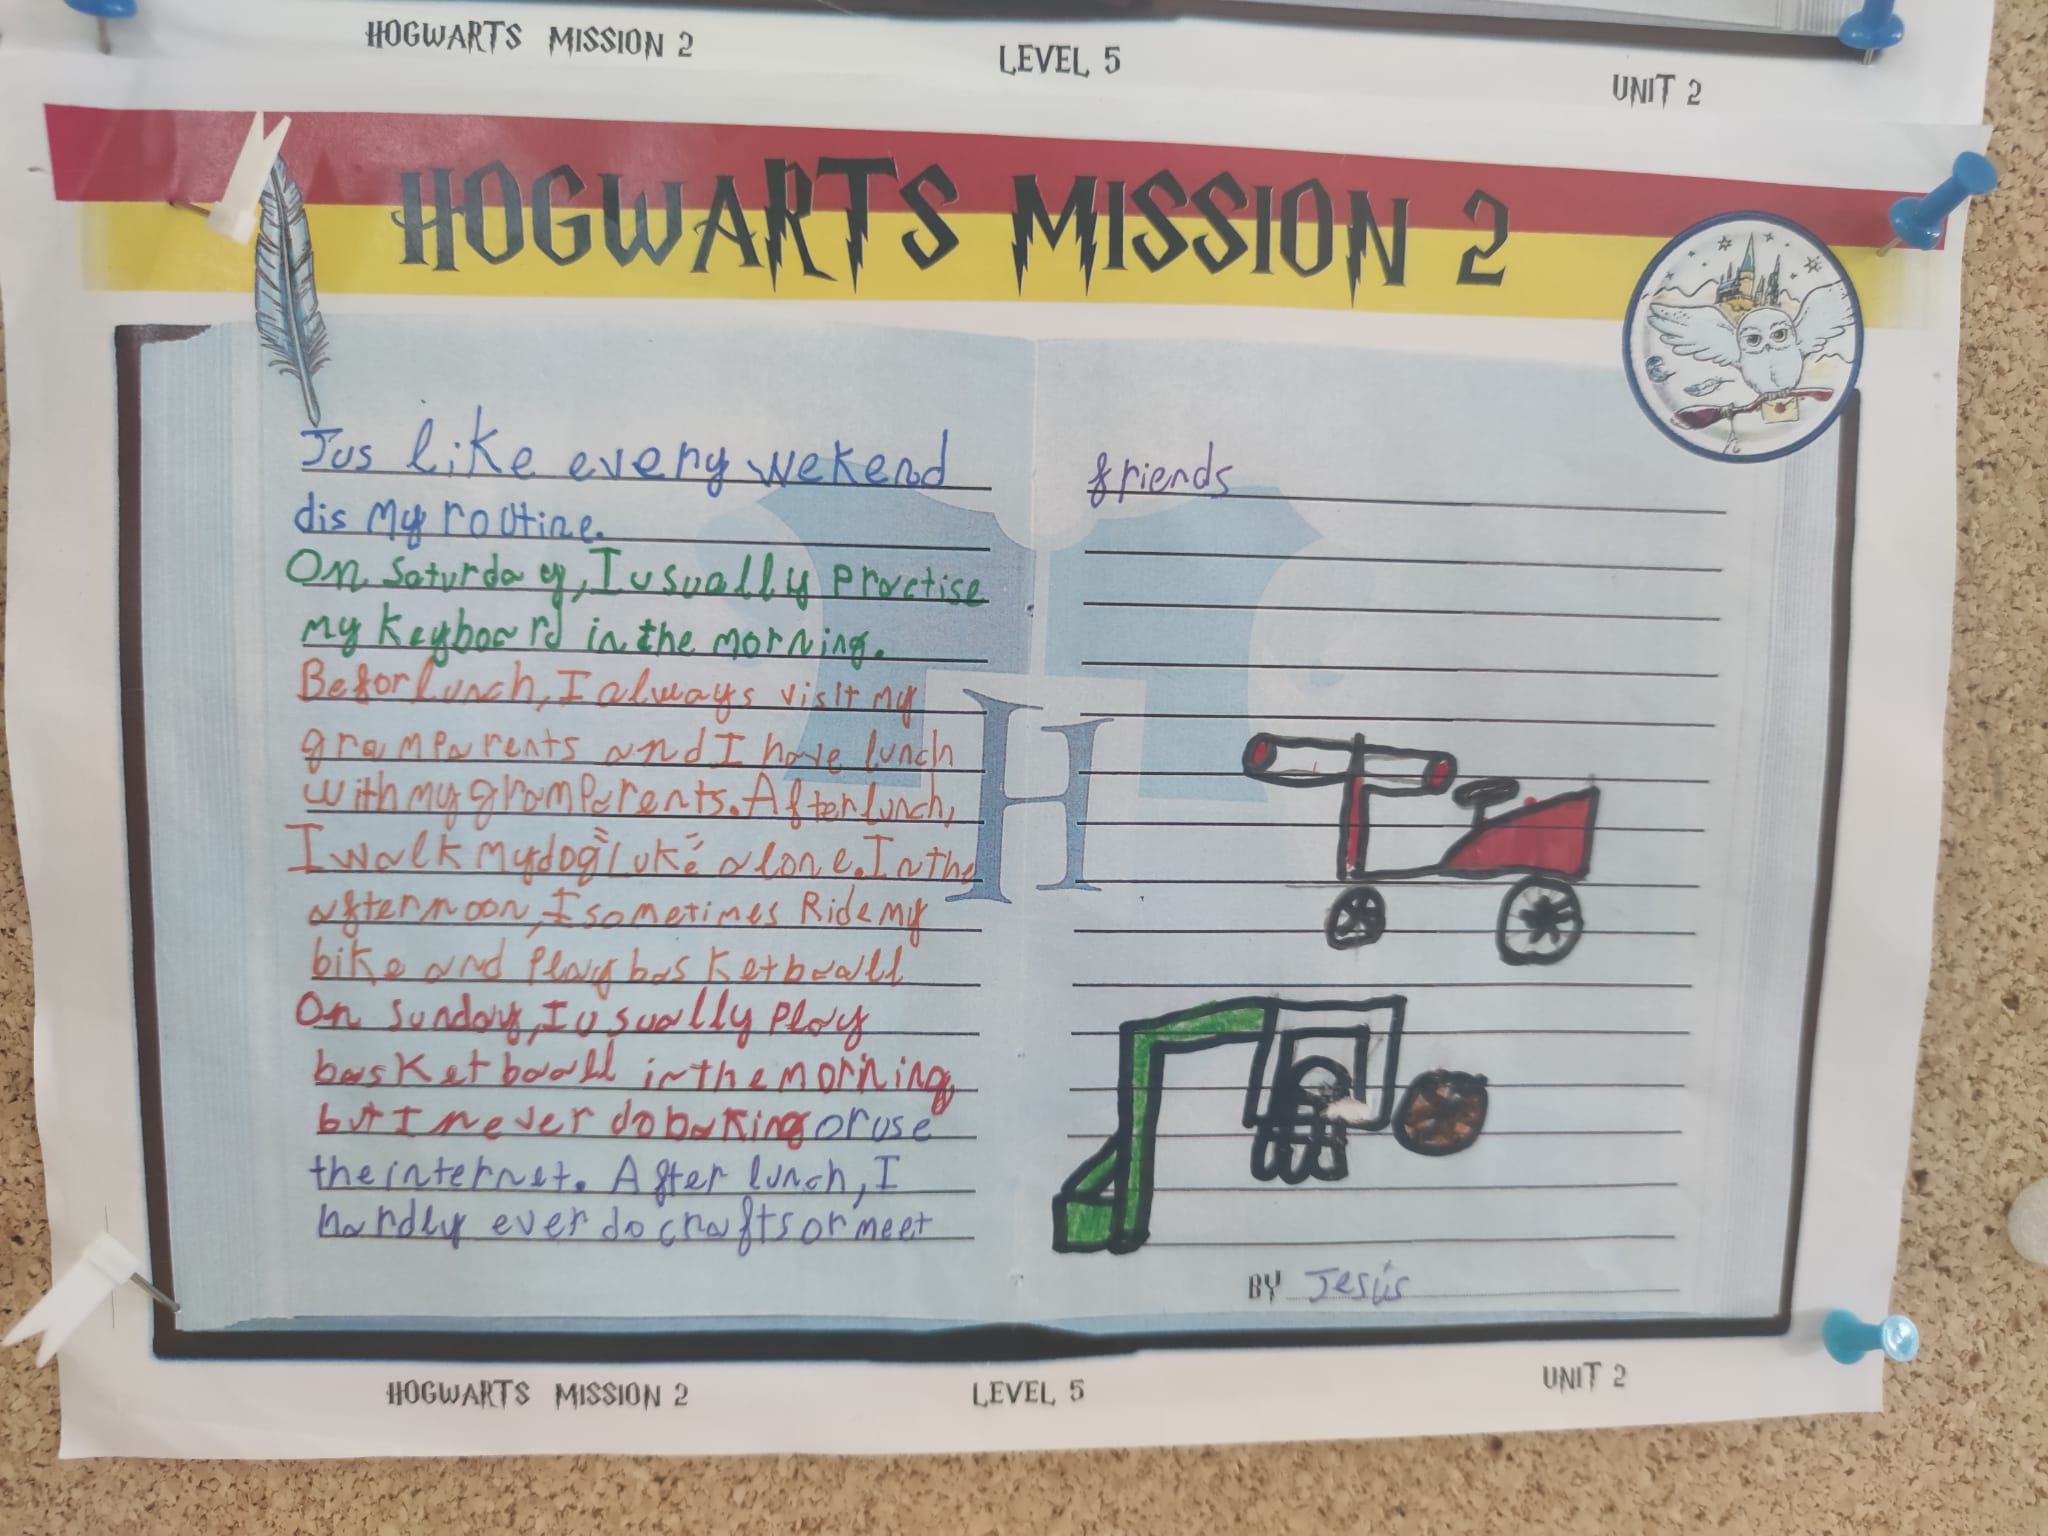 HOGWARTS MISSION 2 LEVEL 5 UNIT 2
HOGWARTS MISSION 2
Jus like every wekend
dis my routine.
On Saturday, I usually practise
my keyboard in the morning.
Befor lunch, I always visit my
gramparents and I have lunch
with my gramparents. After lunch,
I walk my dog "Luke" alone. In the
afternoon, I sometimes Ride my
bike and play basketboall
On Sunday, I usually play
basketboall in the morning,
but I never do baking or use
the internet. After lunch, I
hardly ever do crafts or meet
friends
H
BY Jesús
HOGWARTS MISSION 2 LEVEL 5 UNIT 2